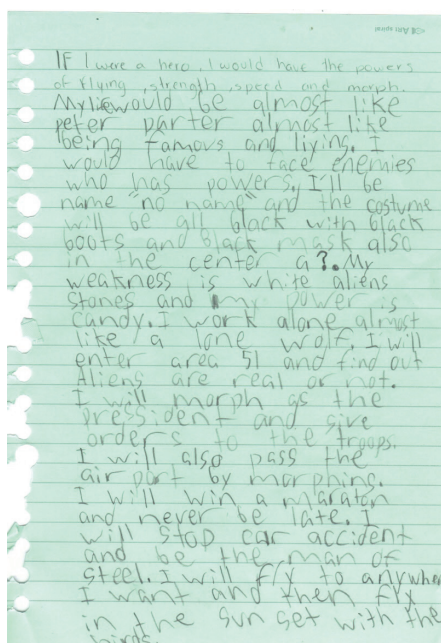 IF I were a hero, I would have the powers
of flying, strength, speed and morph.
My life would be almost like
peter parter almost like
being famous and liying. I
would have to face enemies
who has powers. I'll be
name "no name" and the costume
will be all black with black
boots and black mask also
in the center a ?. My
weakness is white aliens
stones and my power is
candy. I work alone almost
like a lone wolf. I will
enter area 51 and find out
Aliens are real or not.
I will morph as the
pressident and give
orders to the troops.
I will also pass the
air port by morphing.
I will win a maraton
and never be late. I
will stop car accident
and be the man of
steel. I will fly to anywher
I want and then fly
in the sun set with the
birds.